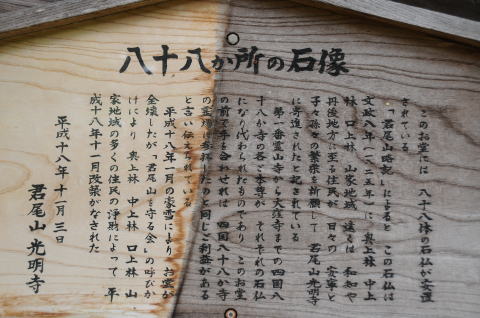 八十八か所の石像
このお堂には 八十八体の石仏が安置
されている
「君尾山略記」によると この石仏は
文政八年(一八二五年)に 奥上林 中上
林 口上林 山家地域 遠くは 和知や
丹後地方に至る住民が 日々の 安寧と
子々孫々の繁栄を祈願して 君尾山光明寺
に寄進されたと記されている
第一番霊山寺から大窪寺までの四国八
十八か寺の各ご本尊が それぞれの石仏
になり代わられたものであり このお堂
の前で手を合わせれば 四国八十八か寺
の霊場を参拝したのと同じご利益がある
と言い伝えられている
平成十八年一月の豪雪により お堂が
全壊したが「君尾山を守る会」の呼びか
けにより 奥上林 中上林 口上林 山
家地域の多くの住民の浄財によって 平
成十八年十一月改築がなされた
平成十八年 十一月三日
君尾山 光明寺